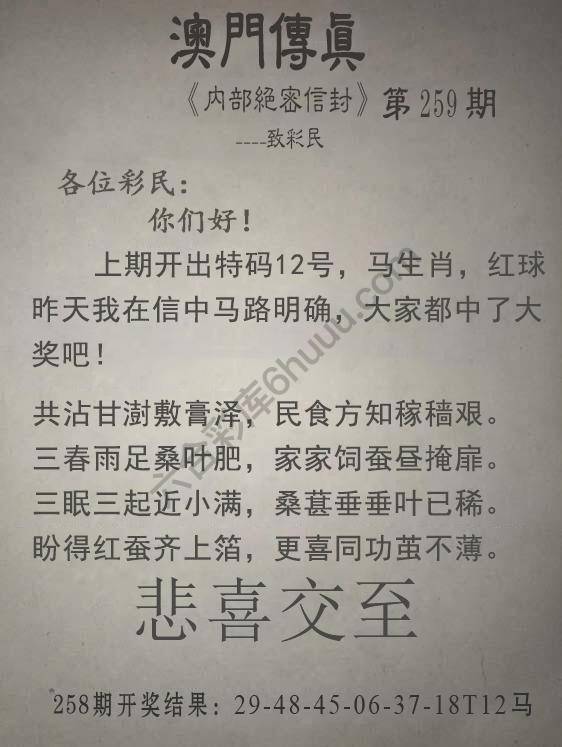 澳門傳真
《内部絕密信封》第259期
----致彩民
各位彩民：
你们好！
上期开出特码12号，马生肖，红球
昨天我在信中马路明确，大家都中了大
奖吧！
共沾甘澍敷膏泽，民食方知稼穑艰。
三春雨足桑叶肥，家家饲蚕昼掩扉。
三眠三起近小满，桑葚垂垂叶已稀。
盼得红蚕齐上箔，更喜同功茧不薄。
悲喜交至
258期开奖结果：29-48-45-06-37-18T12马
六合彩库6huuu.com